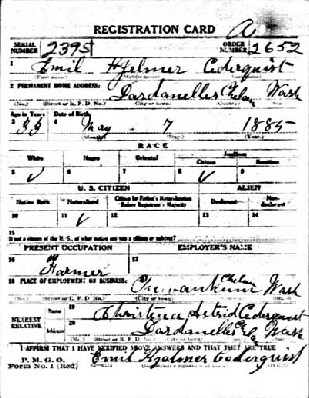 REGISTRATION CARD A
SERIAL NUMBER 2395 ORDER NUMBER 2652
1 Emil Hjelmer Cederquist
2 PERMANENT HOME ADDRESS:
Dardanelles Chelan Wash
Age in Years Date of Birth
3 33 4 May 7 1885
RACE
White Negro Oriental Indian
Citizen Noncitizen
5 ✓ 6 7 8 ✓ 9
U. S. CITIZEN ALIEN
Native Born Naturalized Citizen by Father's Naturalization Before Registrant's Majority Declarant Non-declarant
10 11 ✓ 12 13 14
15
If not a citizen of the U. S., of what nation are you a citizen or subject?
PRESENT OCCUPATION EMPLOYER'S NAME
16 Farmer 17
18 PLACE OF EMPLOYMENT OR BUSINESS:
Chelan Wash
NEAREST RELATIVE
19 Christina Astrid Cederquist
20 Dardanelles C Wash
I AFFIRM THAT I HAVE VERIFIED ABOVE ANSWERS AND THAT THEY ARE TRUE
P. M. G. O.
Form No. 1 (Red) Emil Hjalmer Cederquist